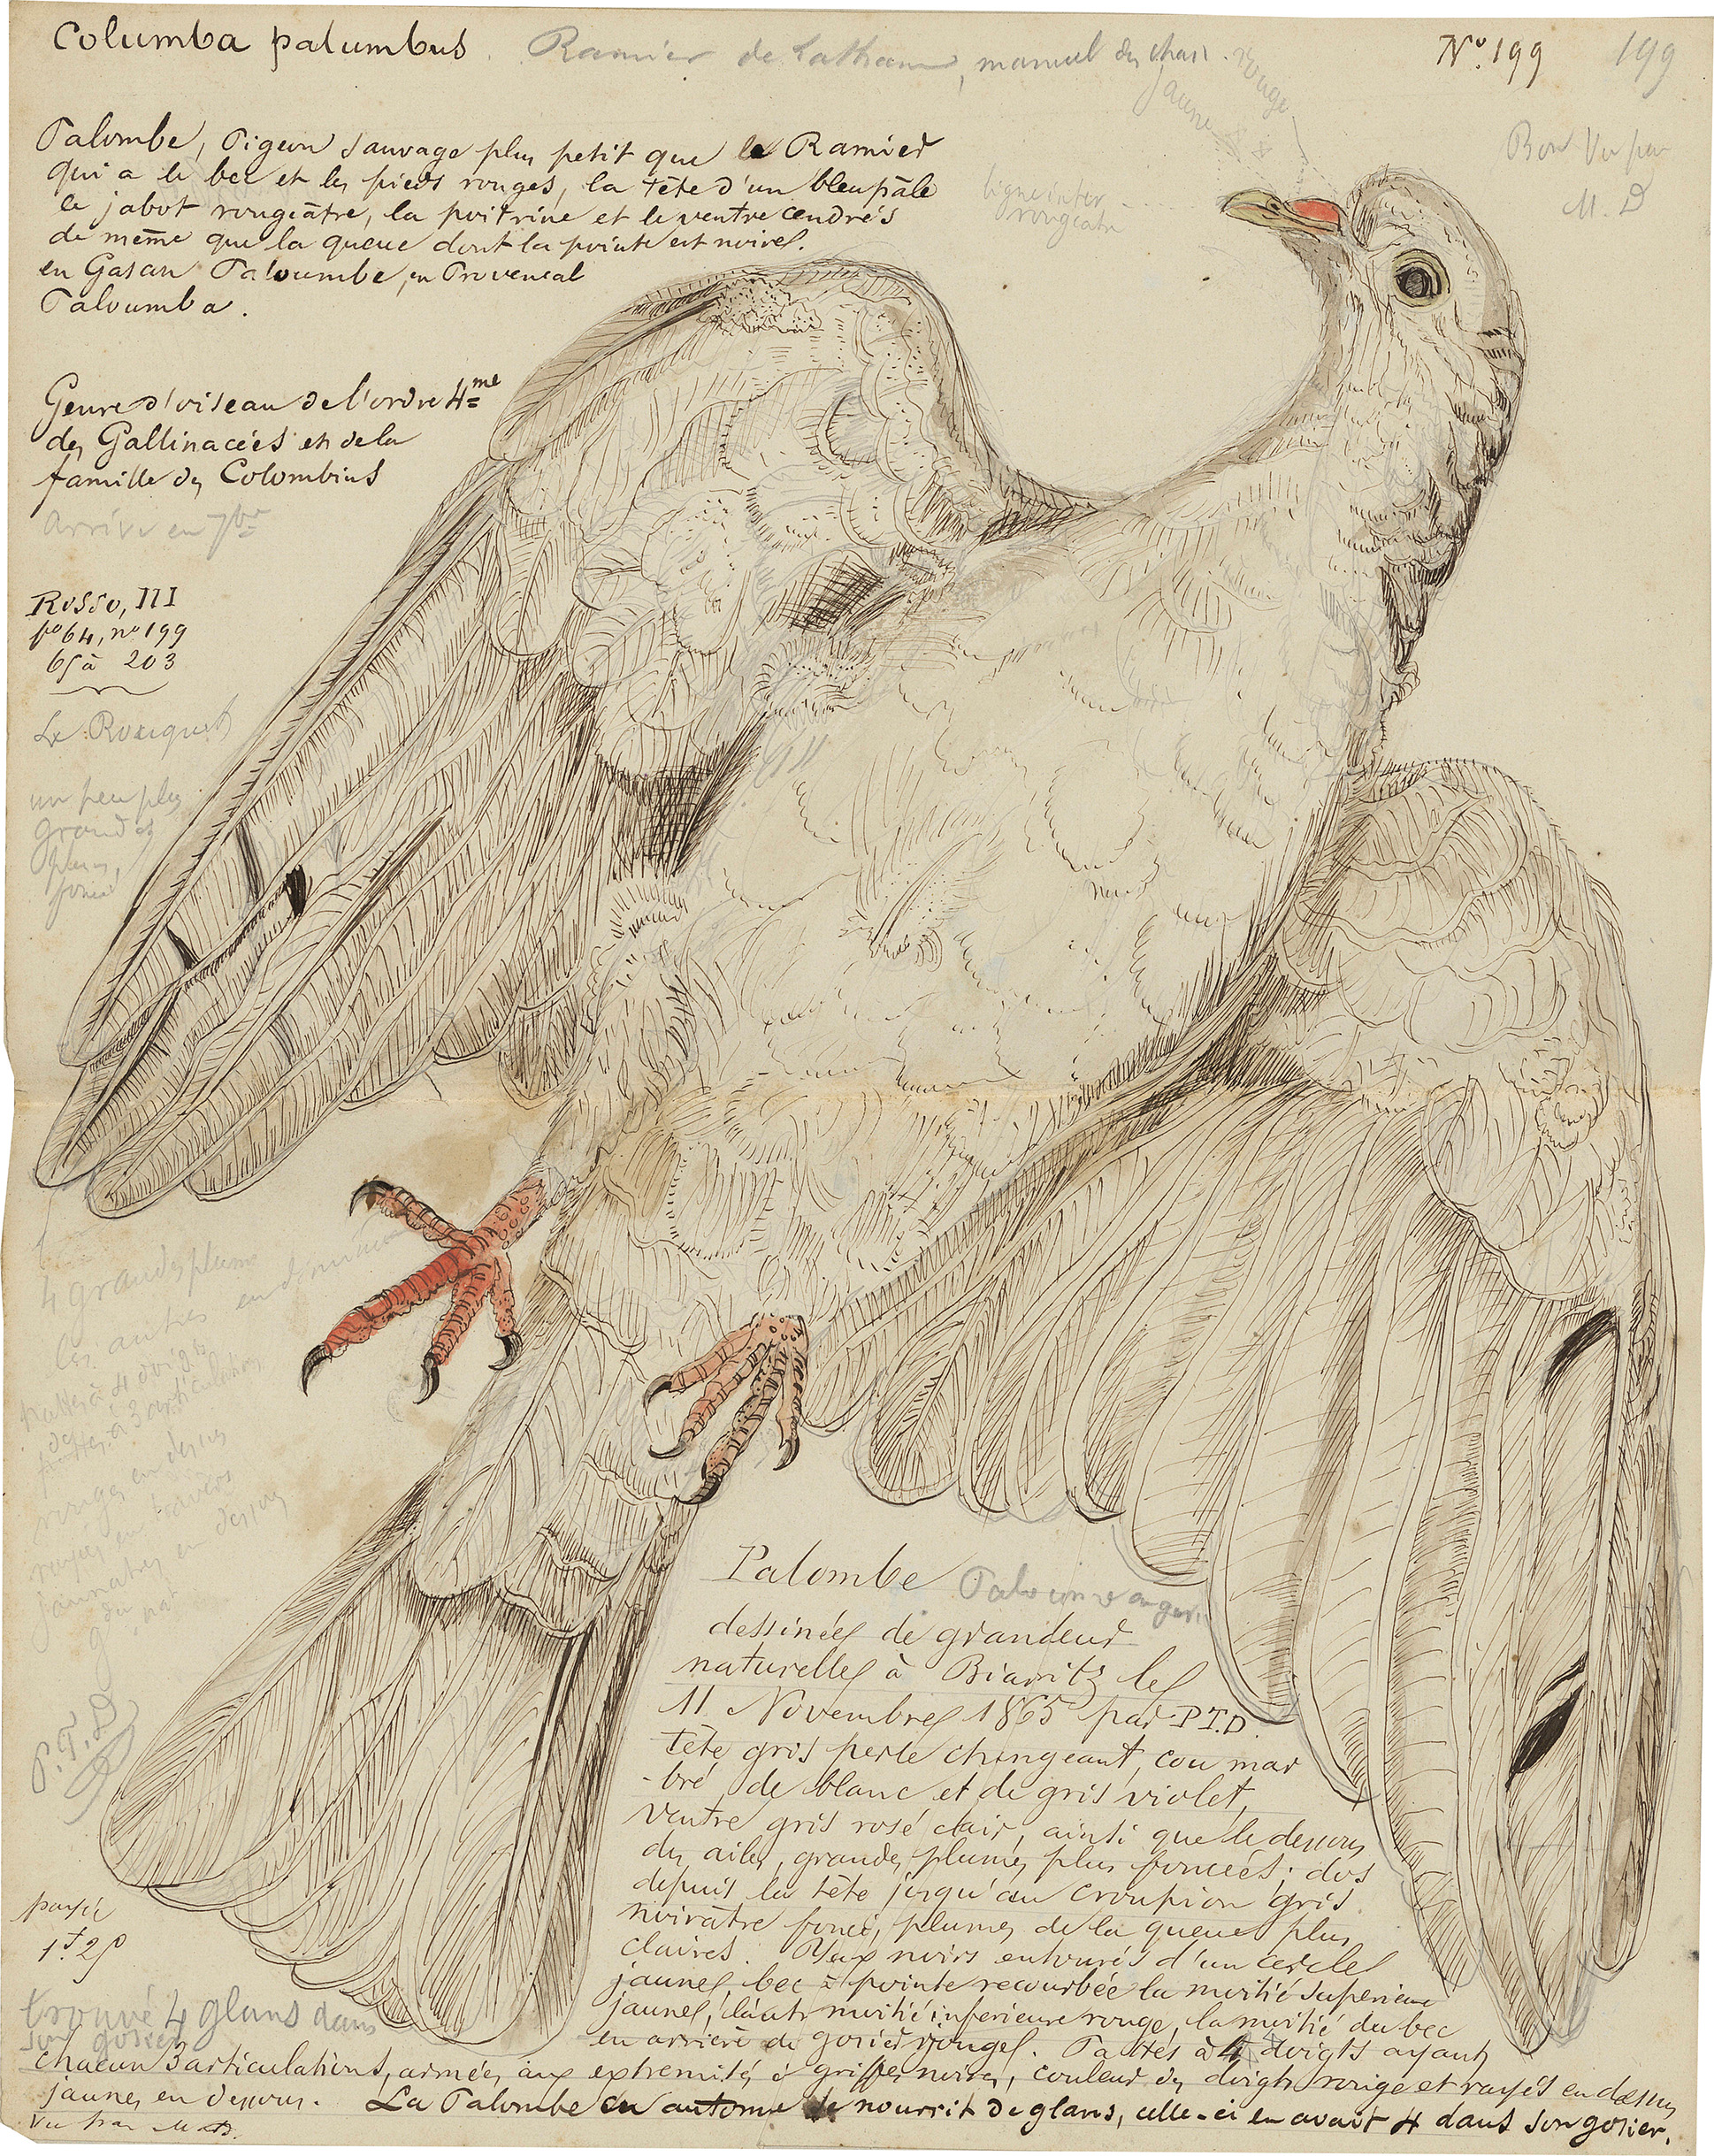 Columba palumbus. Ramier de Latham, manuel du chass.
No. 199 199
rouge
jaune
Bon Vu par
M. D
ligne inter
rougeatre
Palombe, Pigeon sauvage plus petit que le Ramier
qui a le bec et les pieds rouges, la tête d'un bleu pâle
le jabot rougeâtre, la poitrine et le ventre cendrés
de même que la queue dont la pointe est noire.
en Gascon Paloumbe, en Provencal
Paloumba.
Genre d'oiseau de l'ordre 4me
des Gallinacées et de la
famille des Colombins
arrive en 7bre
Rosso, III
fo 64, no 199
65 à 203
un peu plus
grand et
plus
foncé
4 grandes plumes
les autres en
pattes à 4 doigts
à 3 articulations
rouges en dessus
rayées en travers
jaunatres en dessous
P.T.D
Palombe
dessinée de grandeur
naturelle à Biarritz le
11 Novembre 1865 par P.T.D.
tête gris perle changeant, cou mar
-bré de blanc et de gris violet,
ventre gris rosé clair, ainsi que le dessous
des ailes, grandes plumes plus foncées; dos
depuis la tête jusqu'au croupion gris
noirâtre foncé, plumes de la queue plus
claires. Yeux noirs entourés d'un cercle
jaune, bec à pointe recourbée la moitié supérieure
jaune, l'autr moitié inférieure rouge, la moitié du bec
en arrière du gosier rouge. Pattes à 4 doigts ayant
chacun 3 articulations, armées aux extremités de griffes noires, couleur des doigts rouge et rayés en dessus
jaunes en dessous. La Palombe en automne se nourrit de glans, celle-ci en avait 4 dans son gosier.
payée
1f 25
trouvé 4 glans dans
son gosier
Vu par M. D.